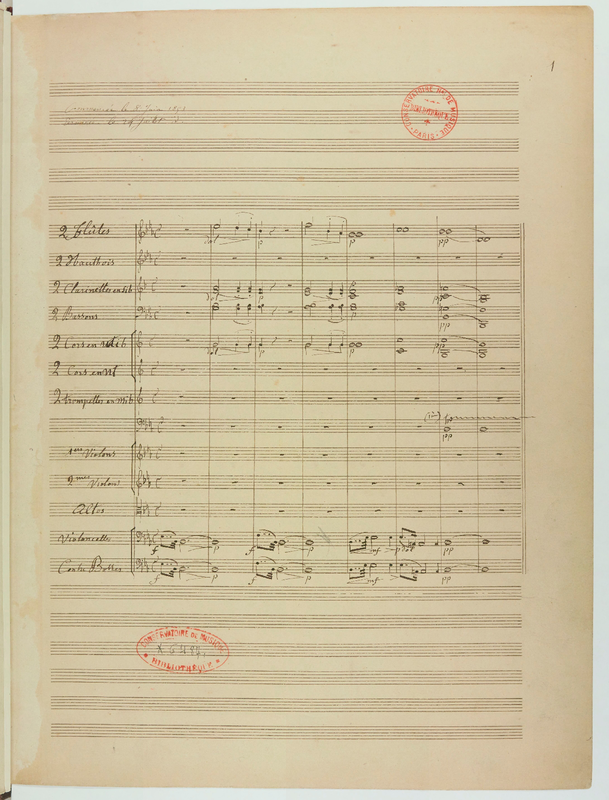 1
CONSERVATOIRE DE MUSIQUE
BIBLIOTHÈQUE
PARIS
le 8 Juin
le 24 Juillet
2 Flûtes
2 Hautbois
2 Clarinettes en sib
2 Bassons
2 Cors en mib
2 Cors en ut
2 trompettes en mib
1ers Violons
2mes Violons
Altos
Violoncelles
Contre Basses
dol p dol p pp
dol p pp
pp
dol p pp
pp
f p f p mf p dol pp
f p f p mf pp
CONSERVATOIRE DE MUSIQUE
BIBLIOTHÈQUE